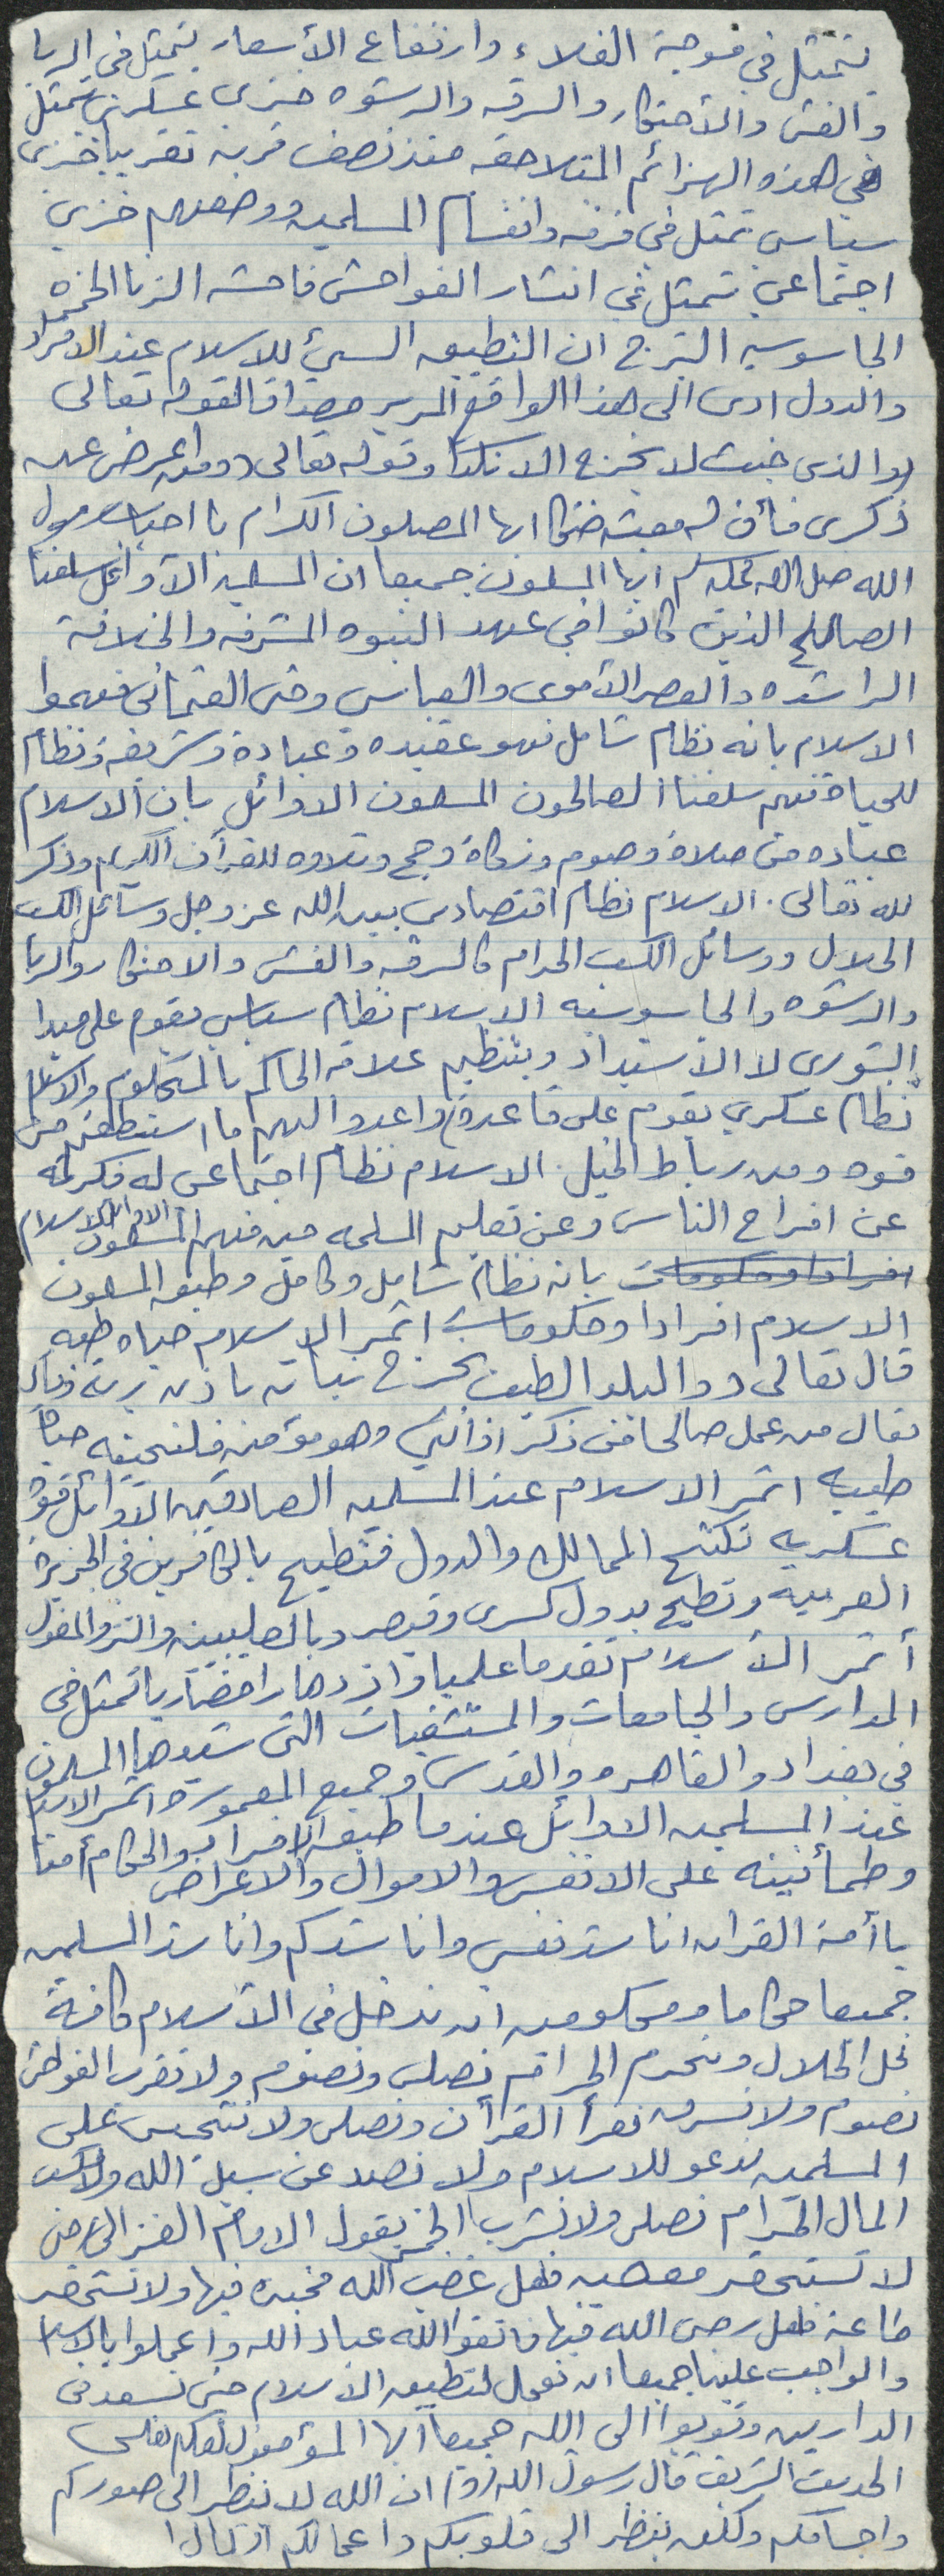 يتمثل في موجة الغلاء وارتفاع الأسعار يتمثل في الربا
والغش والاحتكار والسرقه والرشوه خزي عسكري يتمثل
في هذه الهزائم المتلاحقه منذ نصف قرنه تقريبا خزي
سياسي تمثل في فرقه وانقسام المسلمين وضعفهم خزي
اجتماعي يتمثل في انتشار الفواحش فاحشه الزنا الخمره
الجاسوسيه التبرج ان التطبيق السيئ للاسلام عند الافراد
والدول ادى الى هذا الواقع المرير مصداقا لقوله تعالى
(والذي خبث لا يخرج الا نكدا) وقوله تعالى ((ومن اعرض عن
ذكري فأن له معيشه ضنكا ايها المصلون الكرام يا احباب رسول
الله صلى الله عليه وسلم ايها المسلمون جميعا ان المسلمين الأوائل سلفنا
الصالح الذين كانوا في عهد النبوه المشرفه والخلافة
الراشده والعصر الأموي والعباسي وحتى العثماني فهموا
الاسلام بانه نظام شامل فهو عقيده وعبادة وشريعة ونظام
للحياة فهم سلفنا الصالحون المسلمون الاوائل بان الاسلام
عباده من صلاة وصوم وزكاة وحج وتلاوه للقرآن الكريم وذكر
لله تعالى. الاسلام نظام اقتصادي بين الله عز وجل وسائل الكسب
الحلال ووسائل الكسب الحرام كالسرقه والغش والاحتكار والربا
والرشوه والجاسوسيه الاسلام نظام سياسي يقوم على مبدا
الشورى لا الاستبداد وبتنظيم علاقه الحاكم بالمحكوم والاسلام
نظام عسكري يقوم على قاعدة (واعدوا لهم ما استطعتم من
قوه ومن رباط الخيل. الاسلام نظام اجتماعي له فكرته
عن افراح الناس وعن تعليم المسلمين حين فهم المسلمون الاوائل الاسلام
افرادا وحكومات بانه نظام شامل وكامل وطبق المسلمون
الاسلام افرادا وحكومات اثمر الاسلام حياه طيبه
قال تعالى ((والبلد الطيب يخرج نباته باذن ربه وقال
تعالى من عمل صالحا من ذكر او انثى وهو مؤمن فلنحيينه حياة
طيبه اثمر الاسلام عند المسلمين الصادقين الأوائل قوة
عسكريه تكتسح الممالك والدول فتطيح بالكافرين في الجزيرة
العربيه وتطيح بدول كسرى وقيصر وبالصليبين والتتر والمغول
أثمر الأسلام تقدما علميا وازدهارا حضاريا تمثل في
المدارس والجامعات والمستشفيات التي شيدها المسلمون
في بغداد والقاهره والقدس وجميع المعموره اثمر الاسلام
عند المسلمين الاوائل عندما طبقه الافراد والحكام أمنا
وطمأنينه على الانفس والاموال والاعراض
يا أمة القران اناشد نفسي واناشدكم واناشد المسلمين
جميعا حكاما ومحكومين ان ندخل في الأسلام كافة
نحل الحلال ونحرم الحرام نصلي ونصوم ولا نقرب الفواحش
نصوم ولا نسرق نقرأ القرآن ونصلي ولا نتجسس على
المسلمين ندعو للاسلام ولا نصد عن سبيل الله ولا نكسب
المال الحرام نصلي ولا نشرب الخمر يقول الامام الغزالي
لا تستحقر معصيه فلعل غضب الله مخبوء فيها ولا تستحقر
طاعة فلعل رضى الله فيها فاتقوا الله عباد الله واعملوا بالاسلام
والواجب علينا جميعا ان نعمل لتطبيق الاسلام حتى نسعد في
الدارين وتوبوا الى الله جميعا ايها المؤمنون لعلكم تفلحون
الحديث الشريف قال رسول الله (ص) ان الله لا ينظر الى صوركم
واجسامكم ولكن ينظر الى قلوبكم واعمالكم او كما قال